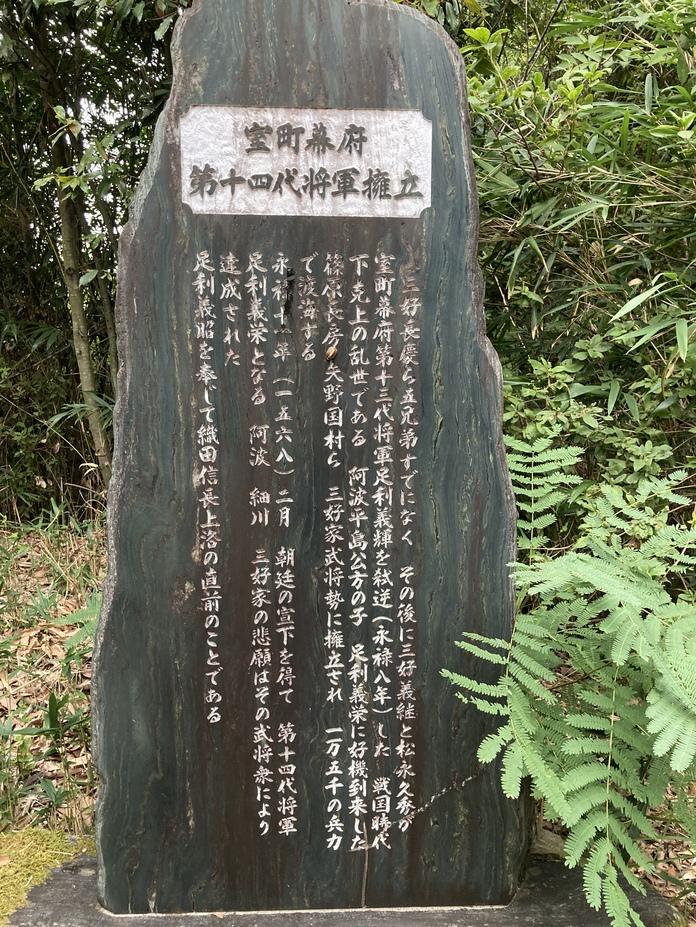 室町幕府
第十四代将軍擁立
三好長慶ら五兄弟すでになく その後に三好義継と松永久秀が
室町幕府第十三代将軍足利義輝を弑逆(永禄八年)した 戦国時代
下克上の乱世である 阿波平島公方の子 足利義栄に好機到来した
篠原長房 矢野国村ら 三好家武将勢に擁立され 一万五千の兵力
で渡海する
永禄十一年(一五六八)二月 朝廷の宣下を得て 第十四代将軍
足利義栄となる 阿波 細川 三好家の悲願はその武将衆により
達成された
足利義昭を奉じて織田信長上洛の直前のことである